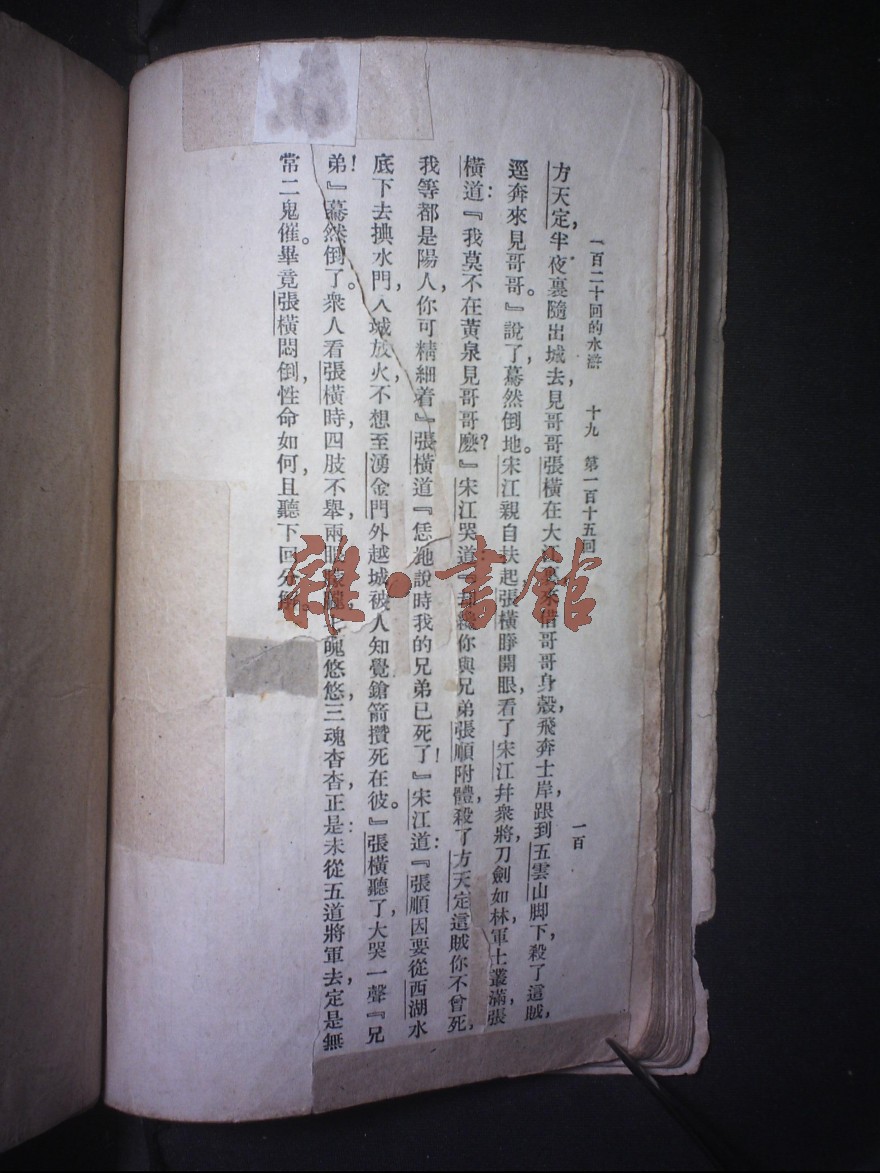 一百二十回的水滸 十九 第一百十五回 一百
方天定，半夜裏隨出城去，見哥哥張橫在大江裏來借哥哥身殼，飛奔上岸，跟到五雲山脚下，殺了這賊，
逕奔來見哥哥。』說了，驀然倒地。宋江親自扶起，張橫睜開眼，看了宋江幷衆將，刀劍如林，軍士叢滿，張
橫道：『我莫不在黃泉見哥哥麽？』宋江哭道：『却纔你與兄弟張順附體，殺了方天定這賊，你不曾死，
我等都是陽人，你可精細着。』張橫道：『恁地說時，我的兄弟已死了！』宋江道：『張順因要從西湖水
底下去㨪水門，入城放火，不想至湧金門外越城，被人知覺，鎗箭攢死在彼。』張橫聽了，大哭一聲：『兄
弟！』驀然倒了。衆人看張橫時，四肢不舉，兩眼朦朧，七魄悠悠，三魂杳杳。正是：未從五道將軍去，定是無
常二鬼催。畢竟張橫悶倒，性命如何，且聽下回分解。
雜·書館